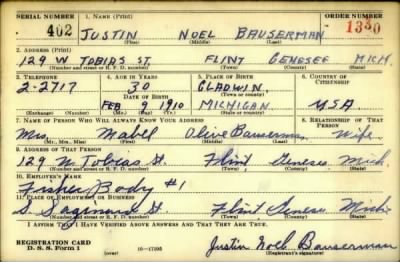 SERIAL NUMBER 1. NAME (Print) ORDER NUMBER
402 JUSTIN NOEL BAUSERMAN 1330
(First) (Middle) (Last)
2. ADDRESS (Print)
129 W TOBIAS ST. FLINT GENESEE MICH.
(Number and street or R. F. D. number) (Town) (County) (State)
3. TELEPHONE 4. AGE IN YEARS 5. PLACE OF BIRTH 6. COUNTRY OF CITIZENSHIP
2-2717 30 GLADWIN
DATE OF BIRTH (Town or county)
FEB 9 1910 MICHIGAN USA
(Exchange) (Number) (Mo.) (Day) (Yr.) (State or country)
7. NAME OF PERSON WHO WILL ALWAYS KNOW YOUR ADDRESS 8. RELATIONSHIP OF THAT PERSON
Mrs. Mabel Olive Bauserman Wife
(Mr., Mrs., Miss) (First) (Middle) (Last)
9. ADDRESS OF THAT PERSON
129 W. Tobias St. Flint, Genesee Mich.
(Number and street or R. F. D. number) (Town) (County) (State)
10. EMPLOYER'S NAME
Fisher Body #1
11. PLACE OF EMPLOYMENT OR BUSINESS
S. Saginaw St Flint Genesee Mich
(Number and street or R. F. D. number) (Town) (County) (State)
I AFFIRM THAT I HAVE VERIFIED ABOVE ANSWERS AND THAT THEY ARE TRUE.
REGISTRATION CARD
D. S. S. Form 1 (over) 16-17105 Justin Noel Bauserman
(Registrant's signature)